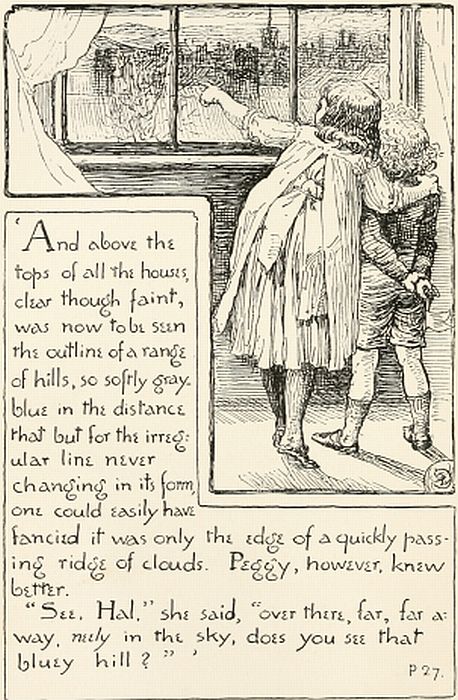 'And above the
tops of all the houses,
clear though faint,
was now to be seen
the outline of a range
of hills, so softly gray-
blue in the distance
that but for the irreg-
ular line never
changing in its form,
one could easily have
fancied it was only the edge of a quickly pass-
ing ridge of clouds. Peggy, however, knew
better.
"See, Hal," she said, "over there, far, far a-
way, neely in the sky, does you see that
bluey hill?" '
P 27.